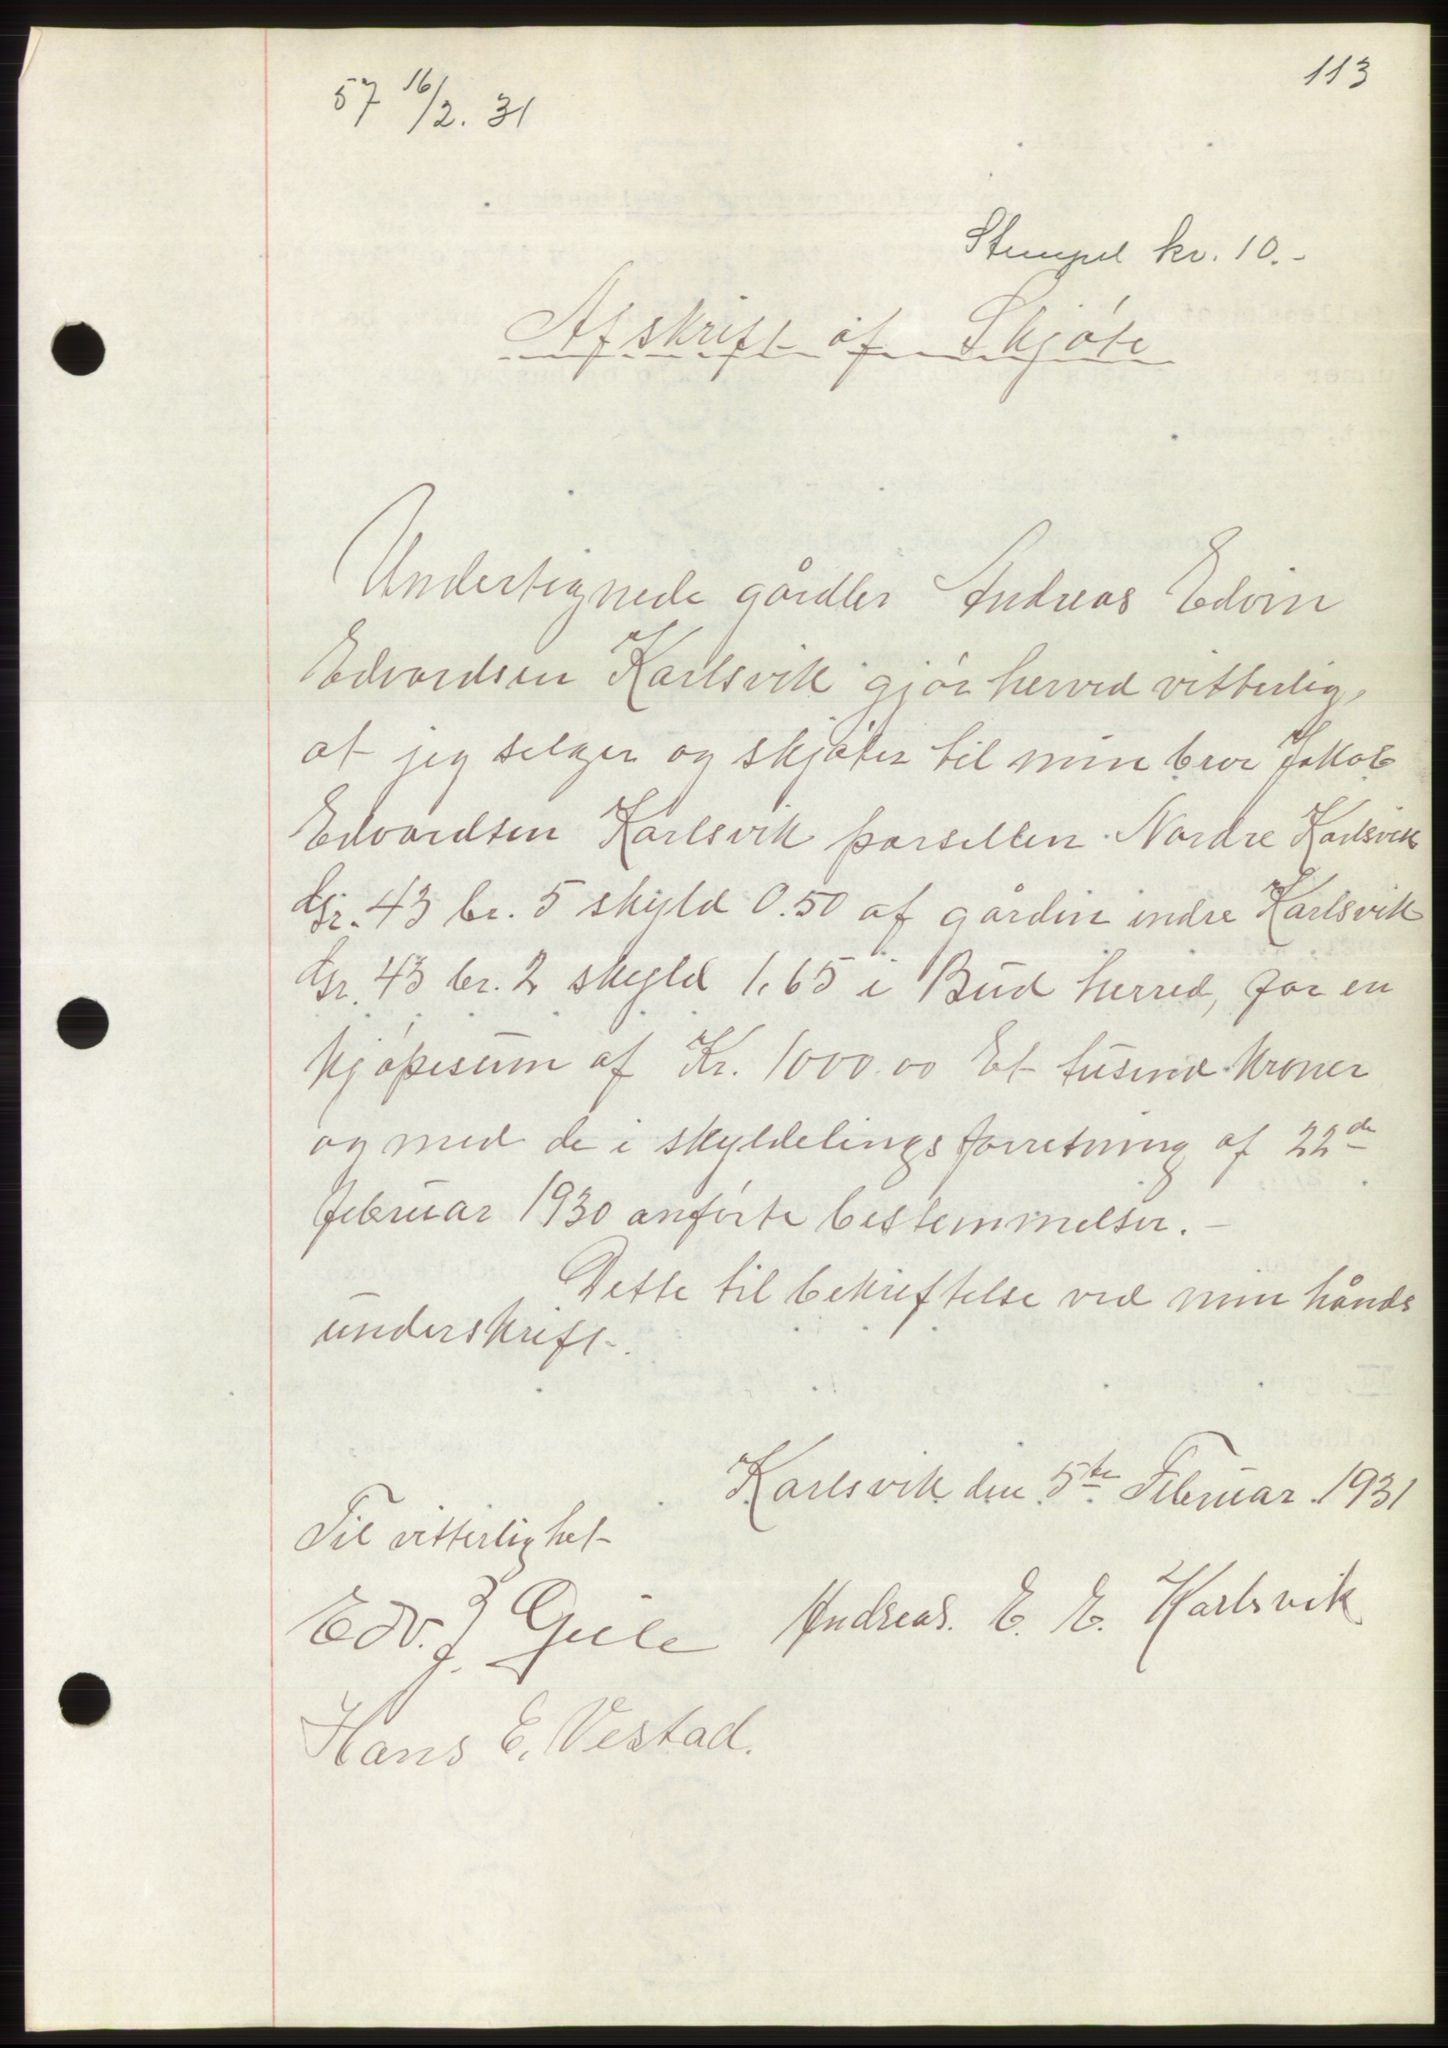 113
57 16/2. 31
Stempel kr. 10.-
Afskrift af Skjøte
Undertignede gårdbr Andreas Edvin
Edvardsen Karlsvik gjør herved vitterlig,
at jeg selger og skjøter til min bror Jakob
Edvardsen Karlsvik parsellen Nordre Karlsvik
Gr. 43 br. 5 skyld 0.50 af gården indre Karlsvik
Gr. 43 br. 2 skyld 1,65 i Bud herred, for en
kjøpesum af Kr. 1000.00 Et tusind kroner
og med de i skyldelingsforretning af 22de
februar 1930 anførte bestemmelser. -
Dette til bekreftelse ved min hånds
underskrift.
Karlsvik den 5te Februar 1931
Til vitterlighet
Andreas. E. E. Karlsvik
Edv. J. Gule
Hans E. Vestad.